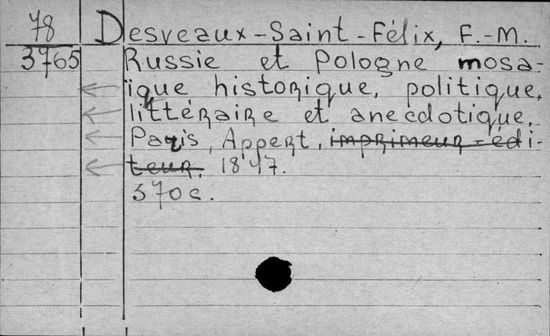 78 Desveaux-Saint-Félix, F.-M.
3765 Russie et Pologne mosa-
ïque historique, politique,
littéraire et anecdotique.
Paris, Appert, imprimeur-édi-
teur, 1847.
370 с.